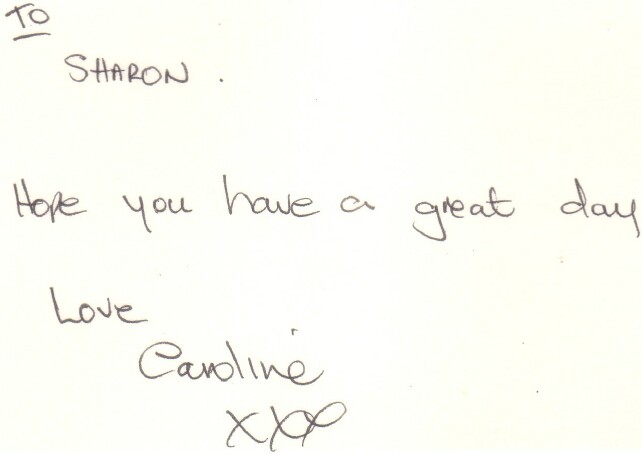 To
SHARON.
Hope you have a great day
Love
Caroline
xxx